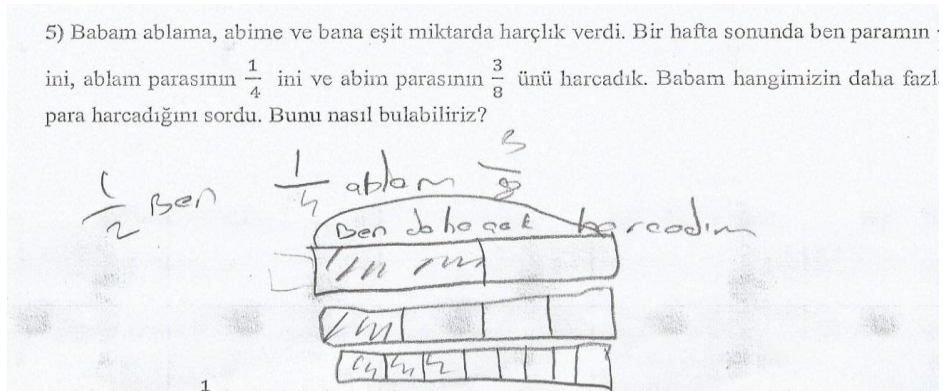 5) Babam ablama, abime ve bana eşit miktarda harçlık verdi. Bir hafta sonunda ben paramın
ini, ablam parasının 1/4 ini ve abim parasının 3/8 ünü harcadık. Babam hangimizin daha fazl
para harcadığını sordu. Bunu nasıl bulabiliriz?
1/2 Ben 1/4 ablam 3/8
Ben daha çok harcadım
1